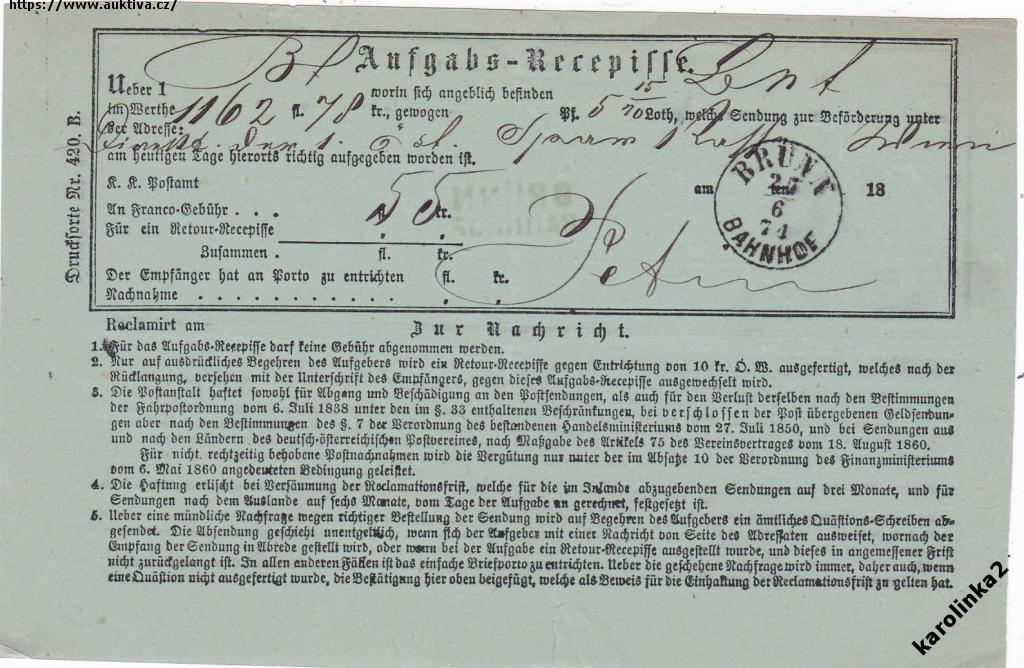 https://www.auktiva.cz/
Aufgabs-Recepisse.
Ueber 1
worin sich angeblich befinden
im Werthe 1162 fl. 78 kr., gewogen Pf. 5 15/20 Loth, welche Sendung zur Beförderung unter
der Adresse:
am heutigen Tage hierorts richtig aufgegeben worden ist.
K. K. Postamt am ten 18
An Franco-Gebühr . . . 55 kr.
Für ein Retour-Recepisse
Zusammen . fl. kr.
Der Empfänger hat an Porto zu entrichten fl. kr.
Nachnahme . . . . . . . . . .
BRÜNN
6
74
BAHNHOF
Drucksorte Nr. 420. B.
Reclamirt am
Zur Nachricht.
1. Für das Aufgabs-Recepisse darf keine Gebühr abgenommen werden.
2. Nur auf ausdrückliches Begehren des Aufgebers wird ein Retour-Recepisse gegen Entrichtung von 10 kr. Ö. W. ausgefertigt, welches nach der
Rücklangung, versehen mit der Unterschrift des Empfängers, gegen dieses Aufgabs-Recepisse ausgewechselt wird.
3. Die Postanstalt haftet sowohl für Abgang und Beschädigung an den Postsendungen, als auch für den Verlust derselben nach den Bestimmungen
der Fahrpostordnung vom 6. Juli 1838 unter den im §. 33 enthaltenen Beschränkungen, bei verschlossen der Post übergebenen Geldsendun-
gen aber nach den Bestimmungen des §. 7 der Verordnung des bestandenen Handelsministeriums vom 27. Juli 1850, und bei Sendungen aus
und nach den Ländern des deutsch-österreichischen Postvereines, nach Maßgabe des Artikels 75 des Vereinsvertrages vom 18. August 1860.
Für nicht rechtzeitig behobene Postnachnahmen wird die Vergütung nur unter der im Absatze 10 der Verordnung des Finanzministeriums
vom 6. Mai 1860 angedeuteten Bedingung geleistet.
4. Die Haftung erlischt bei Versäumung der Reclamationsfrist, welche für die im Inlande abzugebenden Sendungen auf drei Monate, und für
Sendungen nach dem Auslande auf sechs Monate, vom Tage der Aufgabe an gerechnet, festgesetzt ist.
5. Ueber eine mündliche Nachfrage wegen richtiger Bestellung der Sendung wird auf Begehren des Aufgebers ein ämtliches Quästions-Schreiben ab-
gesendet. Die Absendung geschieht unentgeltlich, wenn sich der Aufgeber mit einer Nachricht von Seite des Adressaten ausweiset, wornach der
Empfang der Sendung in Abrede gestellt wird, oder wenn bei der Aufgabe ein Retour-Recepisse ausgestellt wurde, und dieses in angemessener Frist
nicht zurückgelangt ist. In allen anderen Fällen ist das einfache Briefporto zu entrichten. Ueber die geschehene Nachfrage wird immer, daher auch, wenn
eine Quästion nicht ausgefertigt wurde, die Bestätigung hier oben beigefügt, welche als Beweis für die Einhaltung der Reclamationsfrist zu gelten hat.
karolinka2